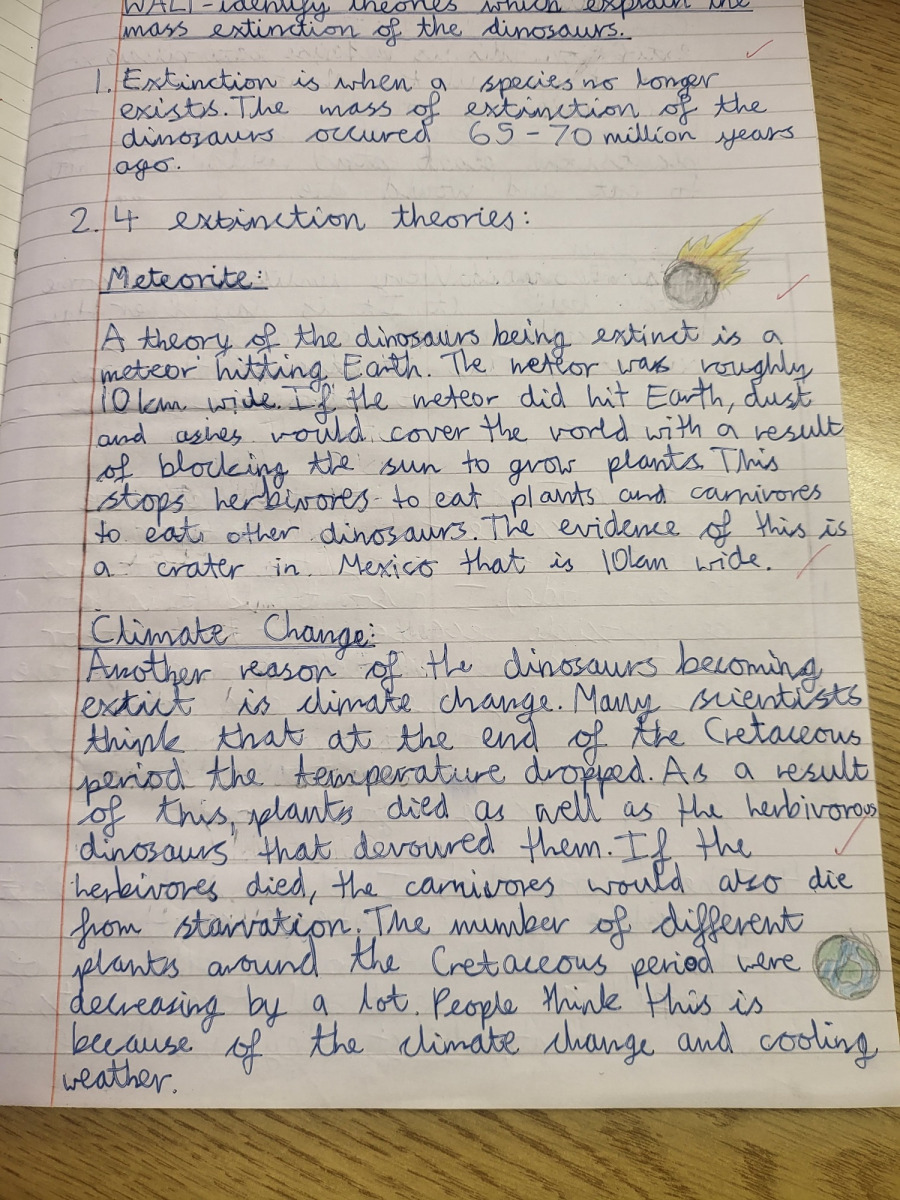 WALT - identify theories which explain the
mass extinction of the dinosaurs.
1. Extinction is when a species no longer
exists. The mass of extinction of the
dinosaurs occured 65-70 million years
ago.
2. 4 extinction theories:
Meteorite:
A theory of the dinosaurs being extinct is a
meteor hitting Earth. The meteor was roughly
10km wide. If the meteor did hit Earth, dust
and ashes would cover the world with a result
of blocking the sun to grow plants. This
stops herbivores to eat plants and carnivores
to eat other dinosaurs. The evidence of this is
a crater in Mexico that is 10km wide.
Climate Change:
Another reason of the dinosaurs becoming
extict is climate change. Many scientists
think that at the end of the Cretaceous
period the temperature dropped. As a result
of this, plants died as well as the herbivorous
dinosaurs that devoured them. If the
herbivores died, the carnivores would also die
from starvation. The number of different
plants around the Cretaceous period were
decreasing by a lot. People think this is
because of the climate change and cooling
weather.